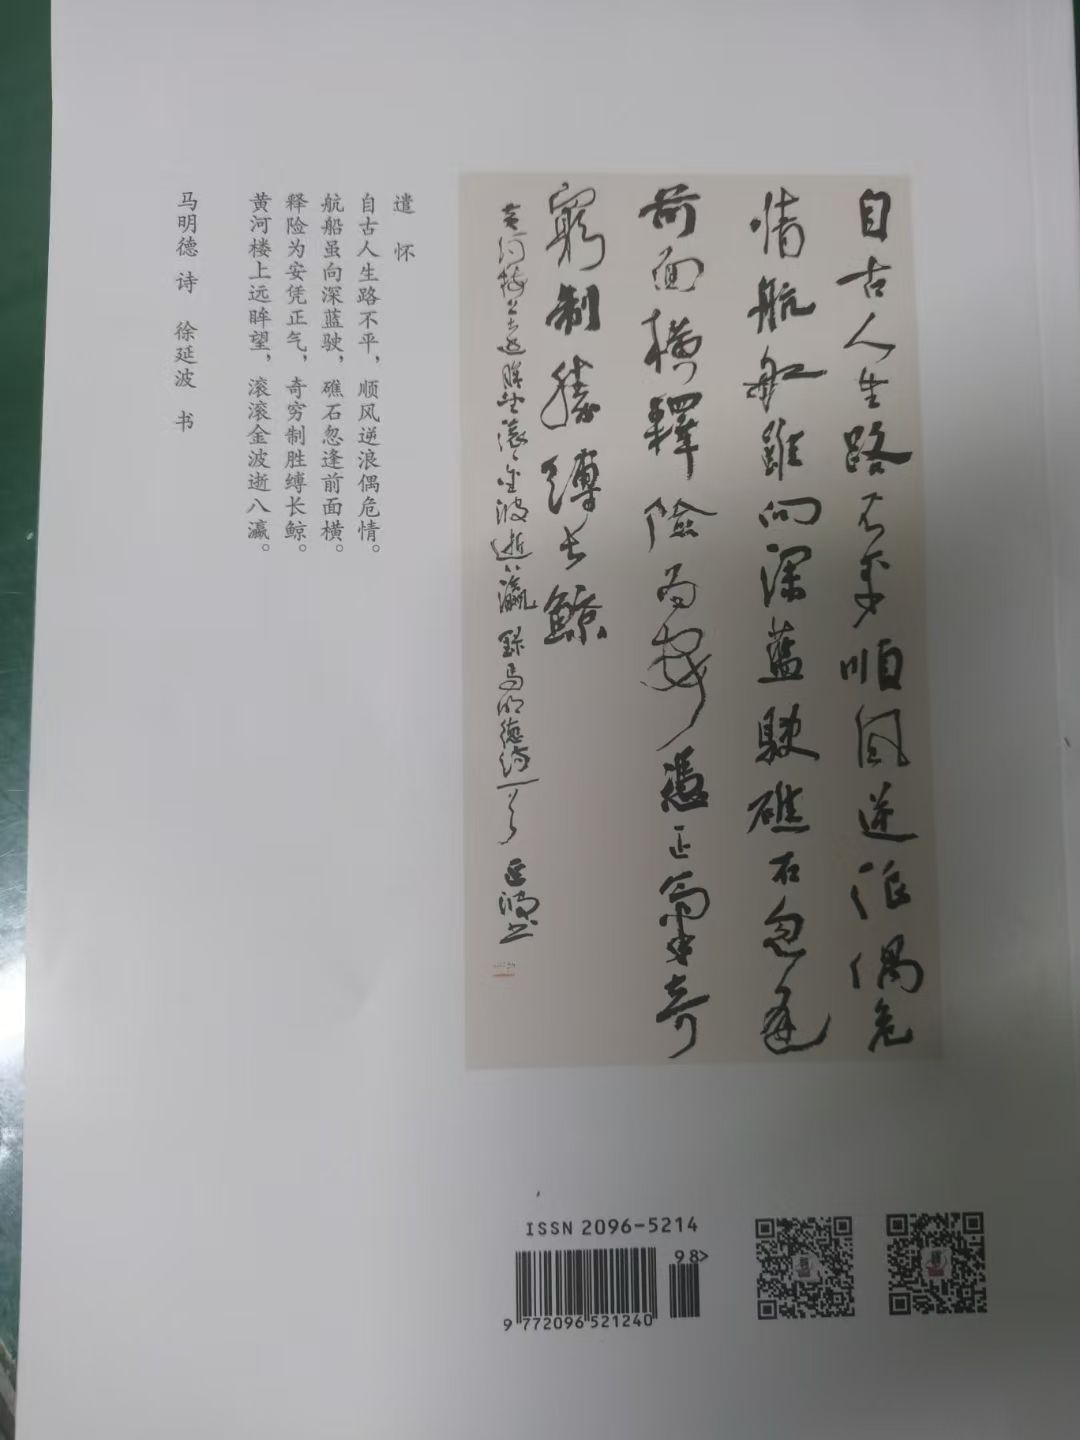 自古人生路不平顺风逆浪偶危
情航船雖向深蓝駛礁石忽逢
前面横释險为安憑正氣奇
窮制勝縛长鲸
黄河楼上远眸望滚滚金波逝八瀛 録马明德诗一首 延波书
遣 怀
自古人生路不平，顺风逆浪偶危情。
航船虽向深蓝驶，礁石忽逢前面横。
释险为安凭正气，奇穷制胜缚长鲸。
黄河楼上远眸望，滚滚金波逝八瀛。
马明德 诗 徐延波 书
ISSN 2096-5214
98>
9 772096 521240